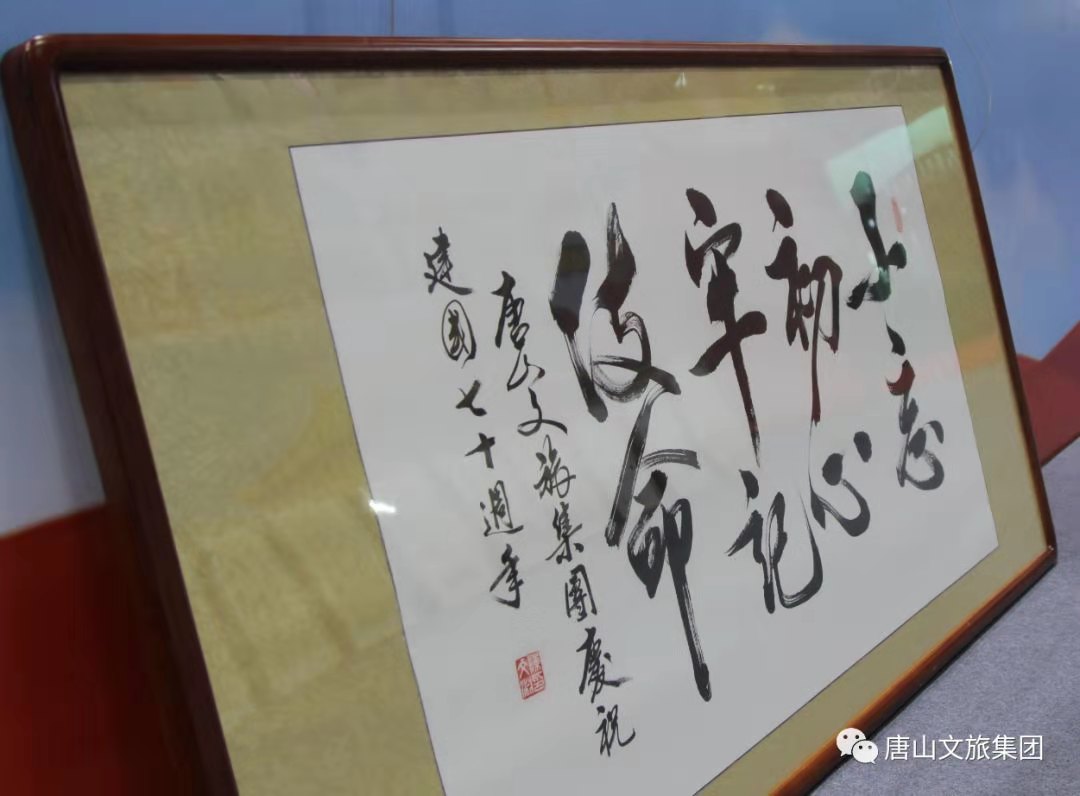 不忘
初心
牢记
使命
唐山文旅集團慶祝
建國七十週年
唐山文旅集团